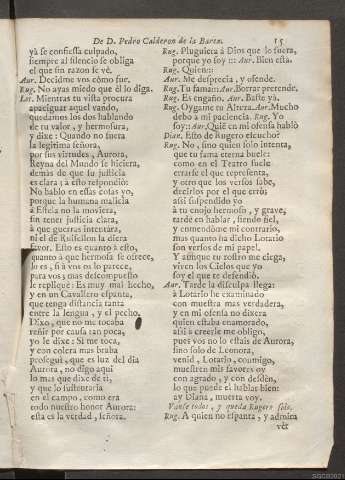 De D. Pedro Calderon de la Barca. 15
yà se confiessa culpado,
siempre al silencio se obliga
el que sin razon se vè.
Aur. Decidme vos còmo fue.
Rug. No ayas miedo que èl lo diga.
Lot. Mientras tu vista procura
apaciguar aquel vando,
quedamos los dos hablando
de tu valor, y hermosura,
y dixe: Quando no fuera
la legitima señora,
por sus virtudes, Aurora,
Reyna del Mundo se hiciera,
demàs de que su justicia
es clara; à esto respondiò:
No hablo en essas cosas yo,
porque la humana malicia
à Estela no la moviera,
sin tener justicia clara,
à que guerras intentàra,
ni el de Ruisellon la diera
favor. Esto es quanto à esto,
quanto à que hermosa se ofrece,
lo es, si à vos os lo parece,
para vos; mas descompuesto
le repliquè: Es muy mal hecho,
y en un Cavallero espanta,
que tenga distancia tanta
entre la lengua, y el pecho.
Dixo, que no me tocaba
reñir por causa tan poca,
yo le dixe: Si me toca,
y con colera mas braba
prosegui, que es luz del dia
Aurora, no digo aqui
lo mas que dixe de ti,
y que lo sustentaria
en el campo, como era
todo nuestro honor Aurora:
esta es la verdad, señora.
Rug. Pluguiera à Dios que lo fuera,
porque yo soy::: Aur. Bien està.
Rug. Quien:::
Aur. Me desprecia, y ofende.
Rug. Tu fama::: Aur. Borrar pretende.
Rug. Es engaño. Aur. Baste yà.
Rug. Oygame tu Alteza. Aur. Mucho
debo à mi paciencia. Rug. Yo
soy::: Aur. Quiē en mi ofensa hablò
Dian. Esto de Rugero escucho?
Rug. No, sino quien solo intenta,
que tu fama eterna buele:
como en el Teatro suele
errarse el que representa,
y otro que los versos sabe,
decirlos por el que errò;
assi suspendido yo
à tu enojo hermoso, y grave,
tardè en hablar, siendo fiel,
y enmendòme mi contrario,
mas quanto ha dicho Lotario
son versos de mi papel.
Y aunque tu rostro me ciega,
viven los Cielos que yo
soy el que te defendiò.
Aur. Tarde la disculpa llega:
à Lotario he examinado
con muestra mas verdadera,
y en mi ofensa no dixera
quien estaba enamorado,
assi à creerle me obligo,
pues vos no lo estais de Aurora,
sino solo de Leonora,
venid, Lotario, conmigo,
muestren mis favores oy
con agrado, y con desdèn,
lo que puede el hablar bien:
ay Diana, muerta voy.
Vanse todos, y queda Rugero solo.
Rug. A quien no espanta, y admira
vèr